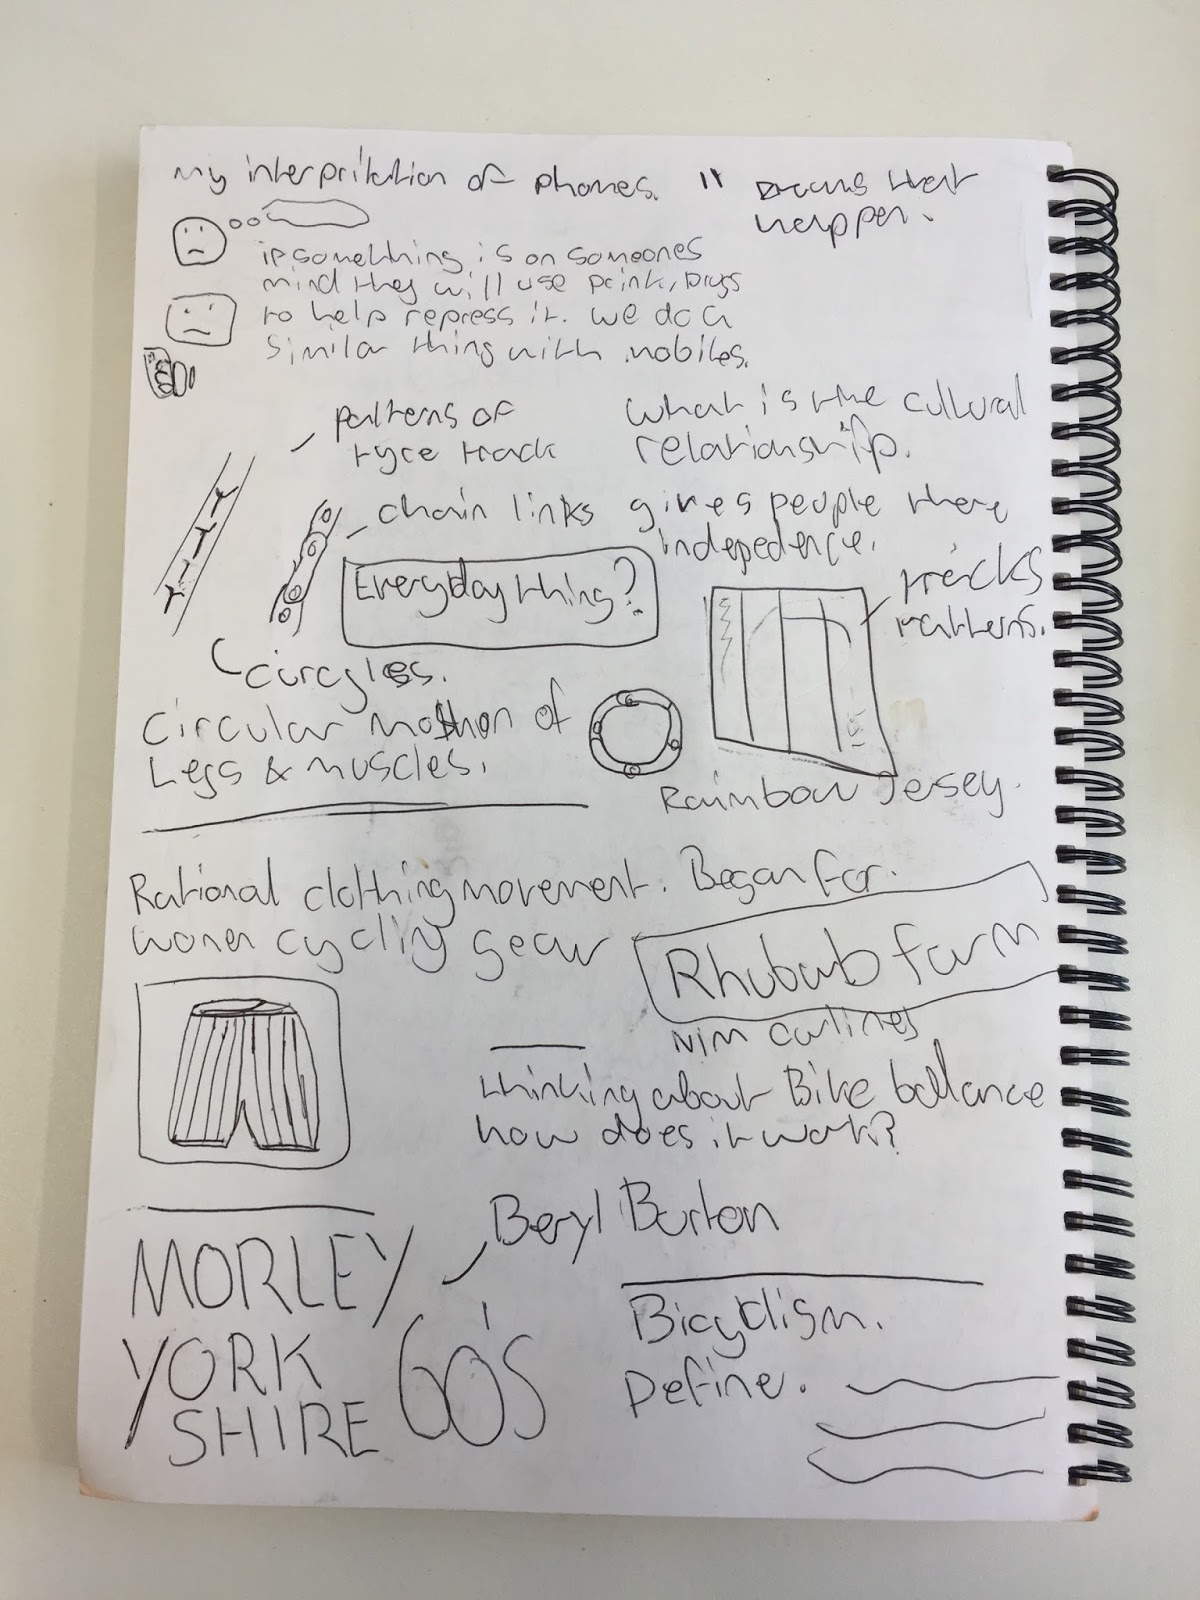 my interpritation of phones. "
that
happen.
if something is on someones
mind they will use
to help repress it. we do a
similar thing with mobiles.
patterns of
tyre track
what is the cultural
relationship.
chain links
gives people there
indepedence.
Everyday thing?
tracks
Patterns.
Circular of
Legs & muscles.
Rainbow Jersey.
Rational clothing movement. Began for.
women cycling gear
Rhubarb farm
thinking about Bike ballance
how does it work?
Beryl Burton
MORLEY
YORK
SHIRE
60's
Bicyclism.
Define.